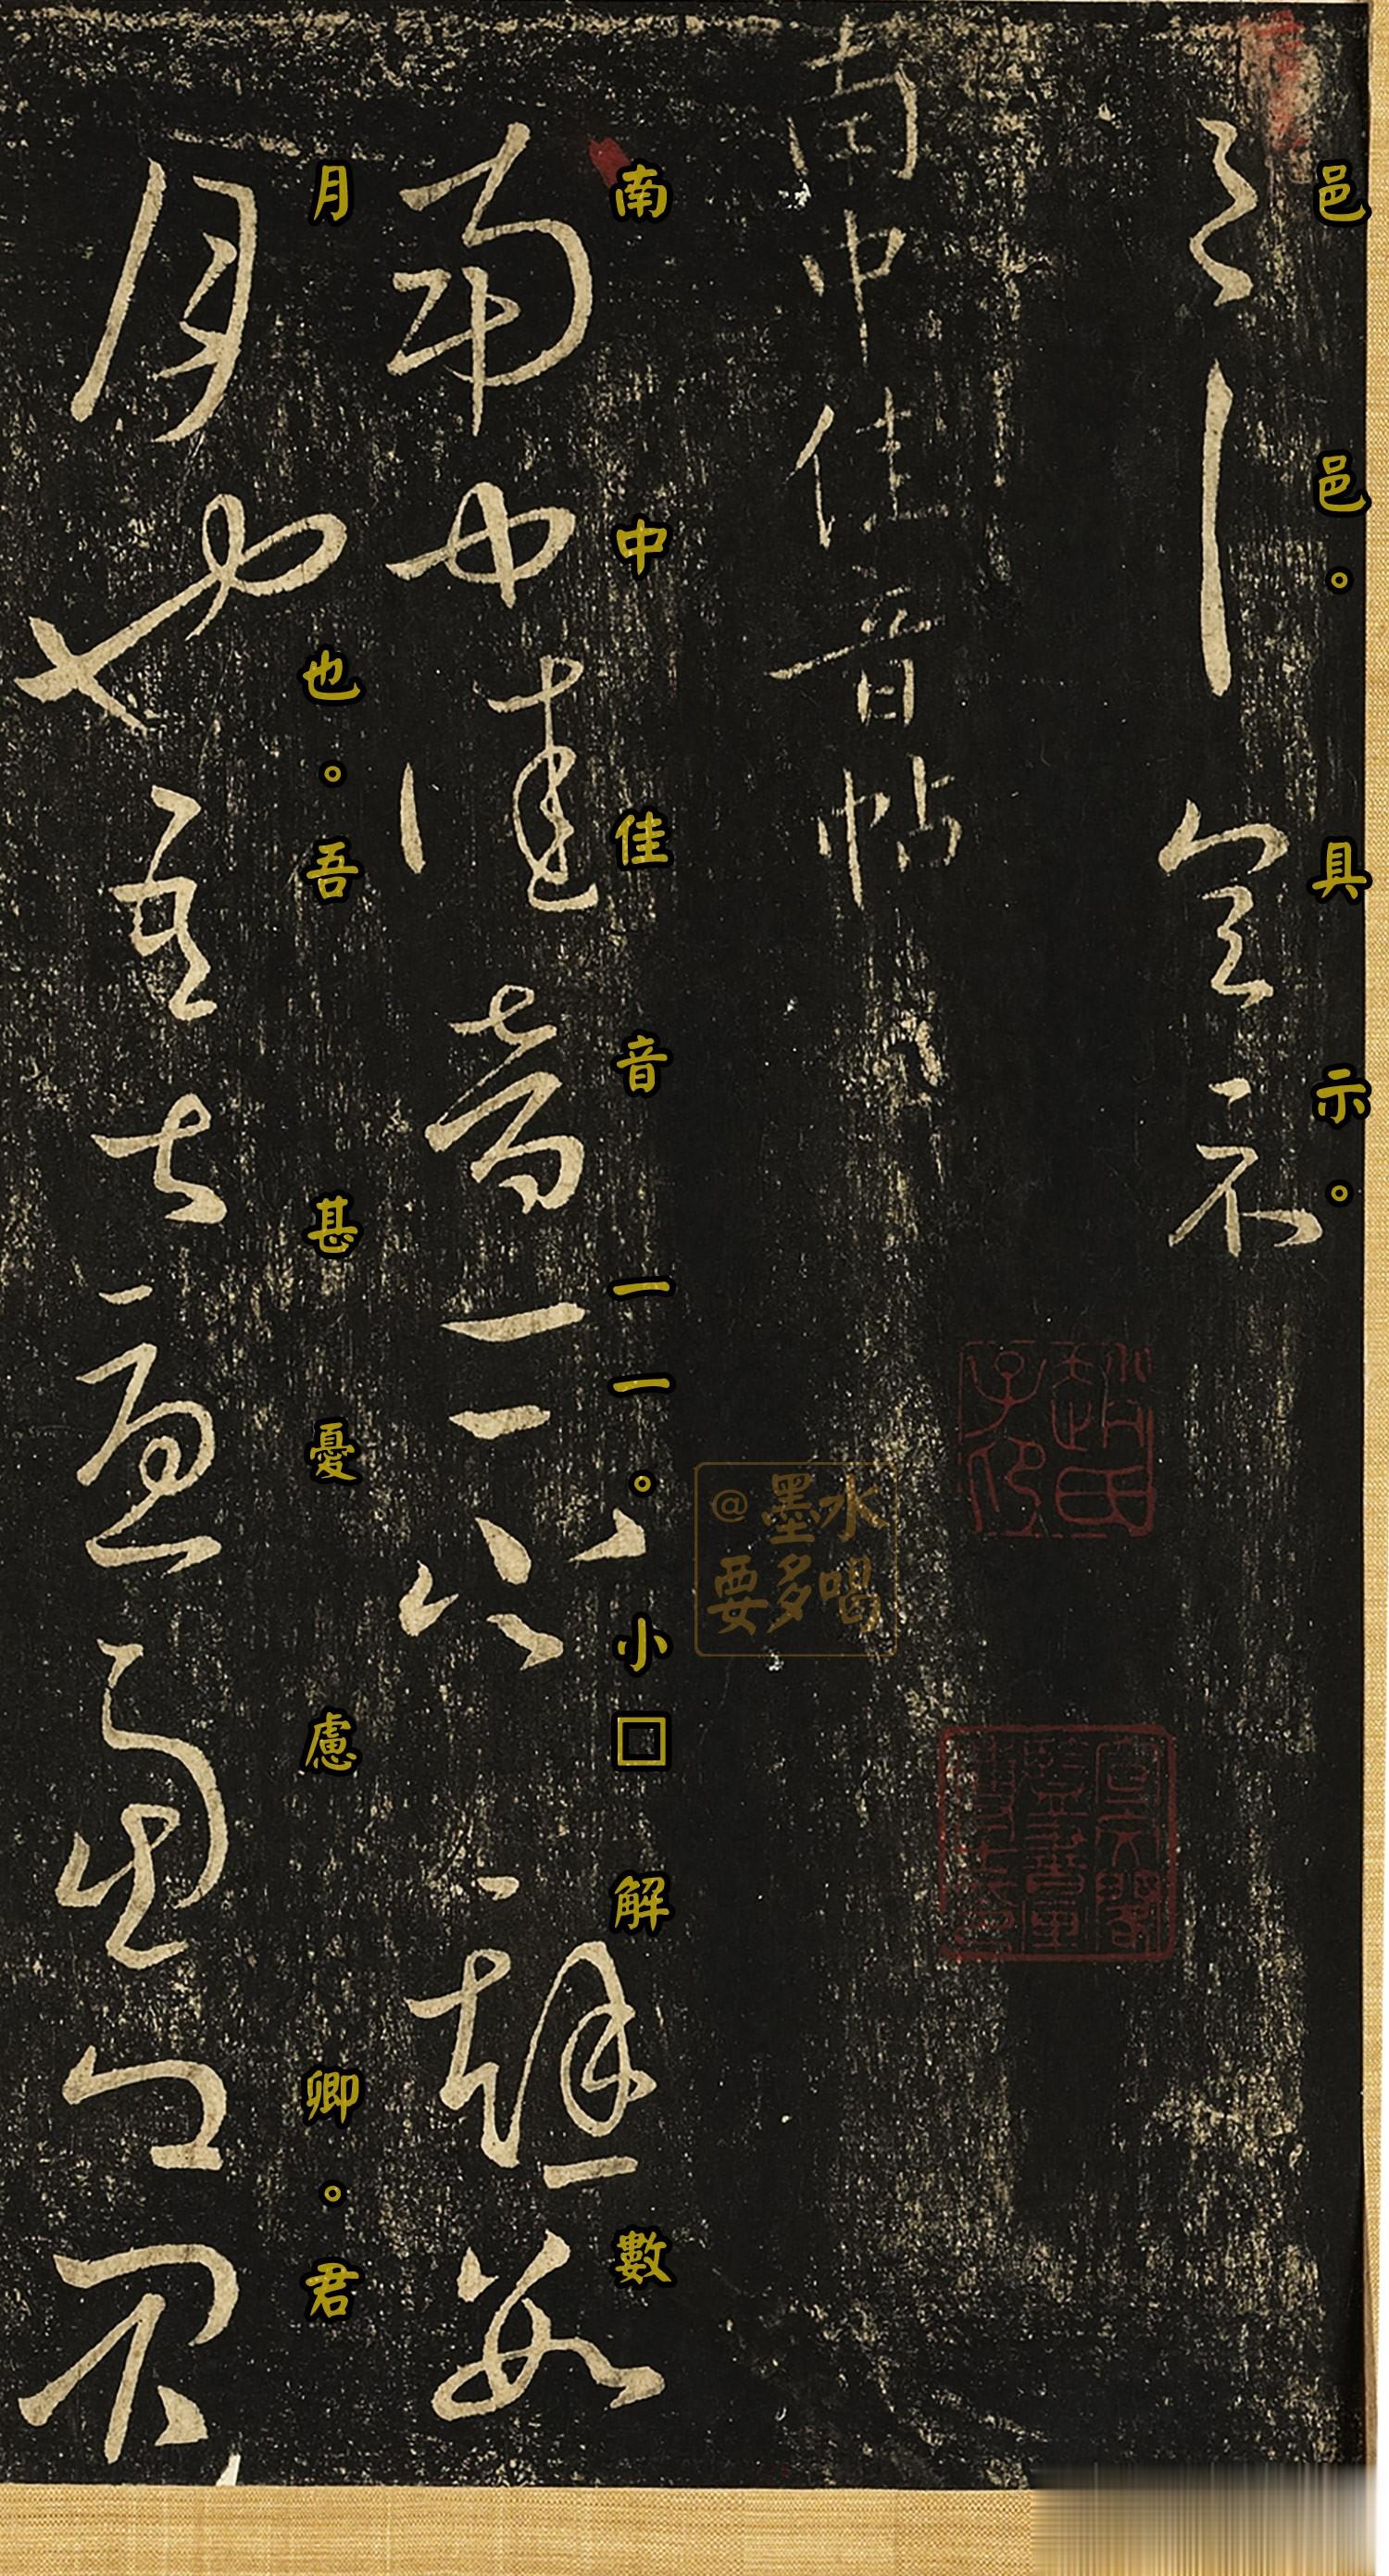 邑邑。具示。
南中佳音帖
南中佳音一一。小□解數
月也。吾甚憂慮卿。君
@墨水
要多喝